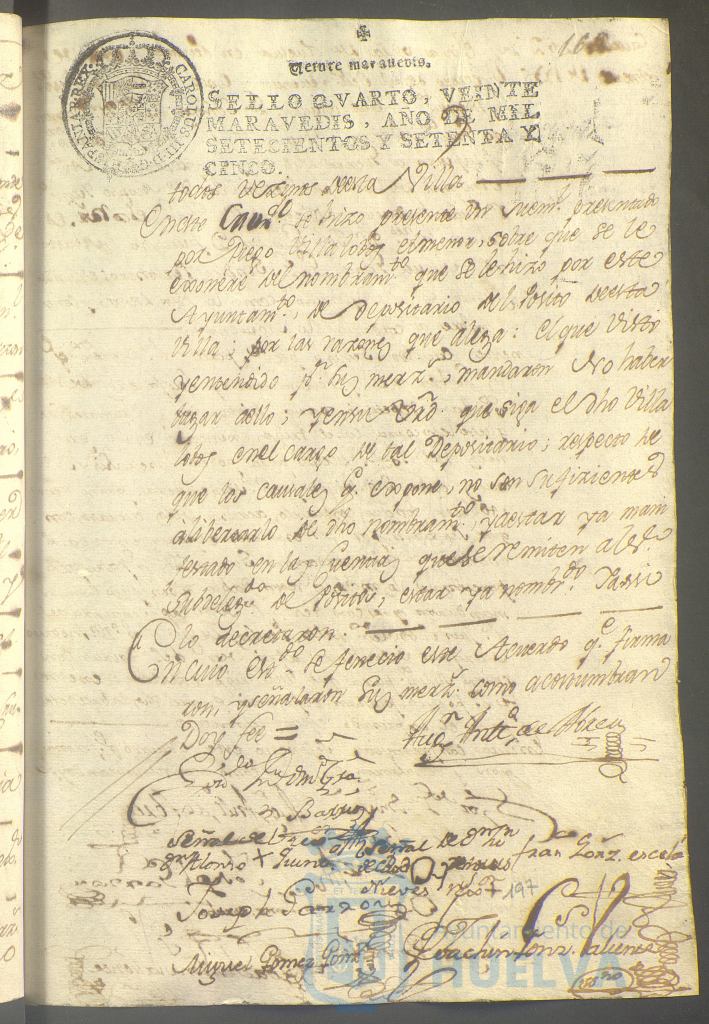 Veinte maravedis.
SELLO QVARTO, VEINTE
MARAVEDIS, AÑO DE MIL
SETECIENTOS Y SETENTA Y
CINCO.
todos vezinos desta Villa
En este Cavdo se hizo presente un mem.l presentado
por Diego Villalobos el menor, sobre que se le
exonere del nombram.to que se le hizo por este
Ayuntam.to, de Depositario del Posito de esta
Villa; por las razones que alega: el que visto
y entendido p.r sus merz.s, mandaron no haber
lugar a ello; y en su Vrd. que siga el dho Villa
lobos en el cargo de tal Depositario; respecto de
que las causales q. expone, no son sufizientes
a libertarlo de dho nombram.to, y a estar ya mani
festado en las Cuentas que se remiten al S.r
Subdeleg.do de Positos, estar ya nombr.do Y assi
lo decretaron.
En cuio est.do se fenecio este Acuerdo q.e firma
ron, y señalaron sus merz.s como acostumbran
Doy fee =
Barrio
señal de señal de
Alonso X Fran Gonz. escala
Nieves 197
Joseph Garzon
Miguel Gomez Joachin Gonz.
Ayuntamiento de
HUELVA